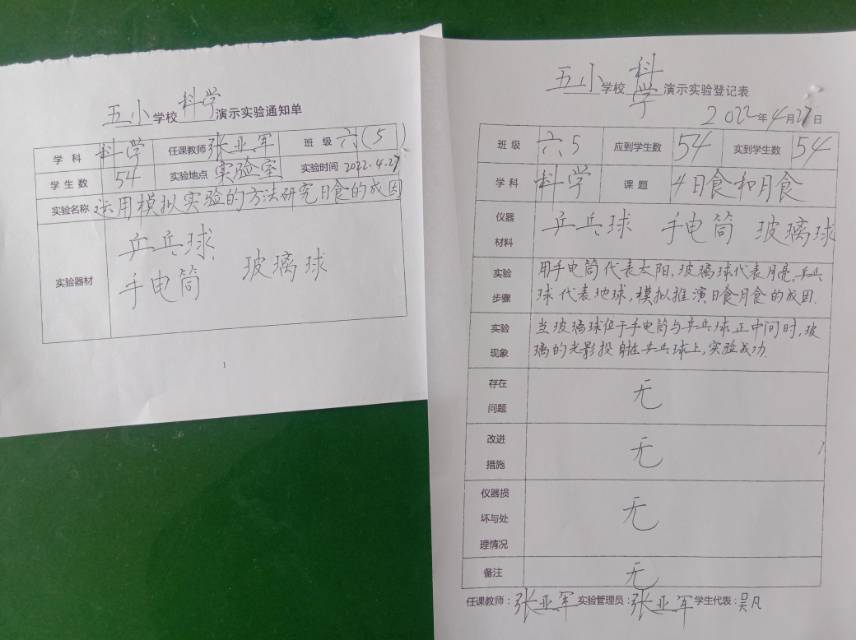 五小学校科学演示实验通知单
学科 科学 任课教师 张亚军 班级 六(5)
学生数 54 实验地点 实验室 实验时间 2022.4.27
实验名称 运用模拟实验的方法研究日食的成因
乒乓球
实验器材 手电筒 玻璃球
1
五小学校科学演示实验登记表
2022年4月27日
班级 六5 应到学生数 54 实到学生数 54
学科 科学 课题 4日食和月食
仪器材料 乒乓球 手电筒 玻璃球
实验 用手电筒代表太阳,玻璃球代表月亮,乒乓
步骤 球代表地球,模拟推演日食月食的成因.
实验 当玻璃球位于手电筒与乒乓球正中间时,玻
现象 璃的光影投射在乒乓球上,实验成功.
存在
问题 无
改进
措施 无
仪器损
坏与处 无
理情况
备注 无
任课教师:张亚军 实验管理员:张亚军 学生代表:吴凡